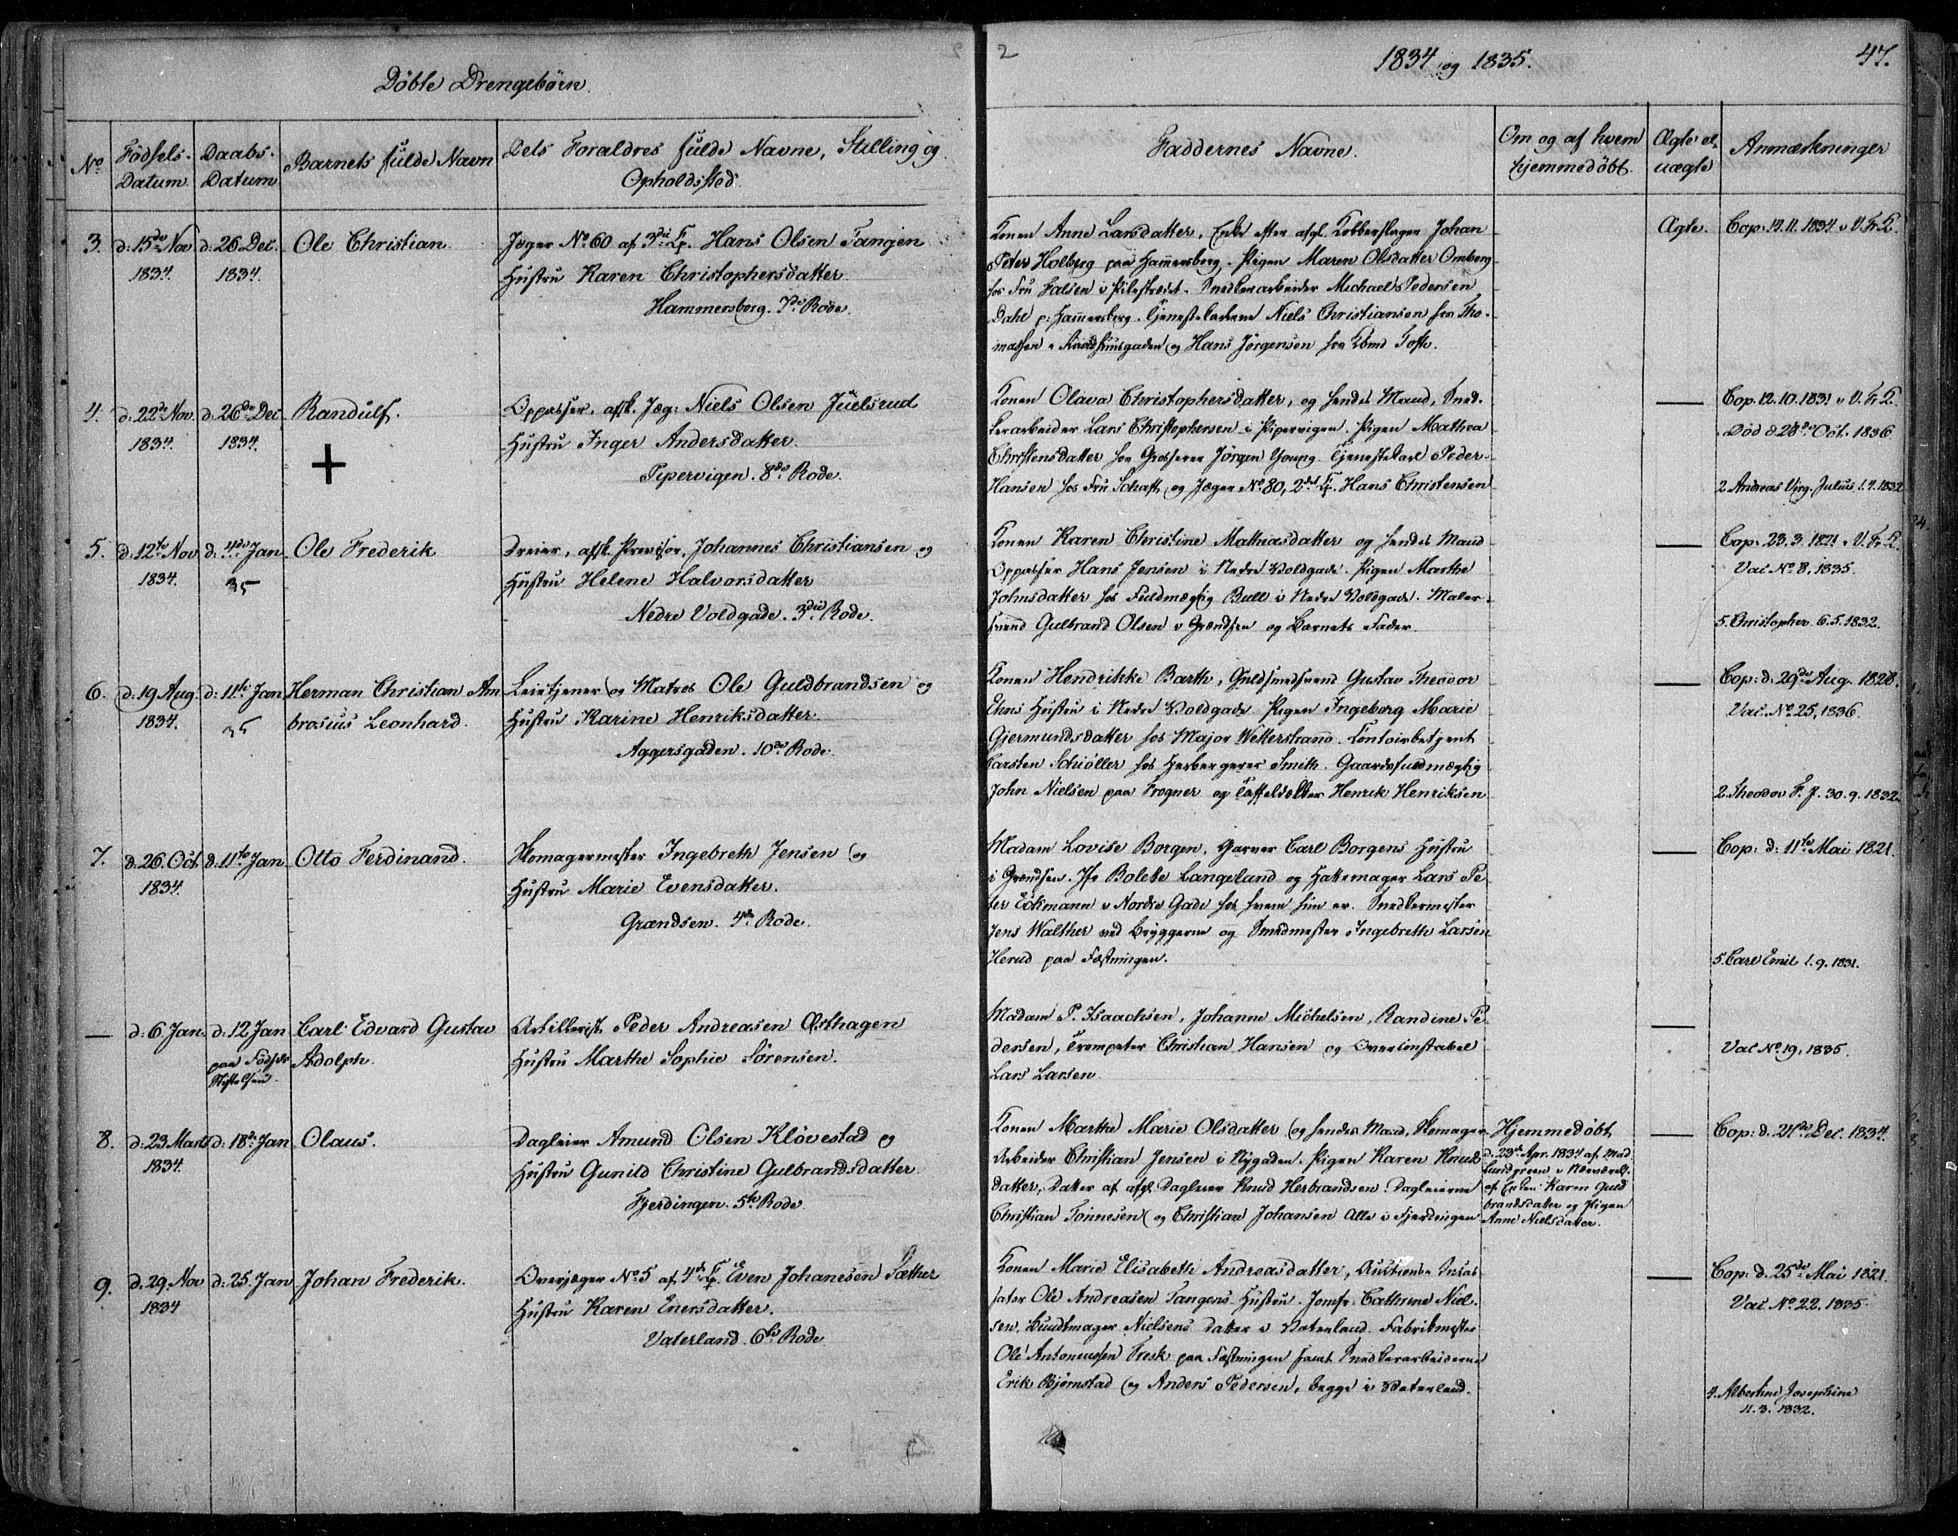 Døbte Drengebørn.
2
1834 og 1835.
47.
No
Fødsels-Datum
Daabs-Datum
Barnets fulde Navn
Dets Forældres fulde Navne, Stilling og Opholdssted.
Faddernes Navne.
Om og af hvem hjemmedøbt.
Ægte el. uægte
Anmærkninger
3.
d: 15de Nov 1834.
d: 26 Dec. 1834.
Ole Christian.
Jæger No 60 af 3die Cp. Hans Olsen Tangen
Hustru Karen Christophersdatter
Hammersborg. 7de Rode.
Konen Anne Larsdatter, Enke efter afgl. Kobberslager Johan
Peter Holberg paa Hammersborg. Pigen Maren Olsdatter Omberg
hos Fru Falsen i Pilestrædet. Snedkerarbeider Michael Pedersen
Dahl p: Hammersberg. Tjenestekarlene Niels Christiansen hos Tho-
massen i Raadhuusgaden og Hans Jørgensen hos Kbmd Tofte.
Ægte.
Cop: 14.11.1834 v. V. Fr. K.
4.
d: 22de Nov. 1834.
d: 26de Dec 1834.
Randulf.
+
Oppasser, afsk. Jæg: Niels Olsen Juelsrud
Hustru Inger Andersdatter.
Pipervigen. 8de Rode.
Konen Olava Christophersdatter, og hendes Mand, Sned-
kerarbeider Lars Christophersen i Pipervigen. Pigen Mathea
Christensdatter hos Grosserer Jørgen Young. Tjenestekarl Peder
Hansen hos Fru Schaft, og Jæger No 80, 2det Cp. Hans Christensen
—
Cop. 12.10.1831 v. V. Fr. K.
Død d: 28de Oct. 1836
2. Andreas Virg. Julius, 1.4.1832
5.
d: 12te Nov 1834.
d: 4de Jan 35
Ole Frederik
Dreier, afsk. Provisor, Johannes Christiansen og
Hustru Helene Halvorsdatter
Nedre Voldgade. 3die Rode.
Konen Karen Christine Mathiasdatter og hendes Mand
Oppasser Hans Jensen i Nedre Voldgade. Pigen Marthe
Johnsdatter hos Fuldmægtig Bull i Nedre Voldgade. Maler-
svend Gulbrand Olsen v Grændsen og Barnets Fader.
—
Cop. 23.3.1821 v. V. Fr. K.
Vac No 8, 1835.
5. Christopher 6.5.1832.
6.
d: 19 Aug: 1834.
d: 11te Jan 35
Herman Christian Am
brosius Leonhard.
Leietjener og Matros Ole Guldbrandsen og
Hustru Karine Henriksdatter.
Aggersgaden. 10de Rode.
Konen Hendrikke Barth, Guldsmedsvend Gustav Theodor
Ehns Hustru i Nedre Voldgade Pigen Ingeborg Marie
Gjermundsdatter hos Major Wetterstrand. Contoirbetjent
Carsten Schiøller hos Herbergerer Smith. Gaardsfuldmægtig
John Nielsen paa Frogner og Taffeldækker Henrik Henriksen
—
Cop: d. 29de Aug. 1828.
Vac. No 25, 1836.
2. Theodor F. J. 30.9.1832.
7.
d. 26. Oct. 1834.
d: 11te Jan
Otto Ferdinand.
Skomagermester Ingebreth Jensen og
Hustru Marie Evensdatter.
Grændsen. 4de Rode.
Madam Lovise Borgen, Garver Carl Borgens Hustru
i Grændsen. Jfr Bolette Langeland og Hattemager Lars Pe-
ter Eckmann v Nordre Gade hos hvem hun er. Snedkermester
Jens Walther ved Bryggerne og Smedmester Ingebreth Larsen
Herud paa Fæstningen.
—
Cop: d: 11te Mai 1821.
5. Carl Emil 1.9.1831.
—
d: 6 Jan.
d: 12 Jan
paa Fødsels
Stiftelsen.
Carl Edvard Gustav
Adolph.
Artillerist Peder Andreasen Østhagen
Hustru Marthe Sophie Sørensen.
Madam P. Isaachsen, Johanne Michelsen, Randine Pe-
dersen, Trompeter Christian Hansen og Overkonstabel
Lars Larsen.
—
Vac No 19, 1835.
8.
d: 23 Marts 1834.
d: 18de Jan
Olaus.
Dagleier Amund Olsen Kløvestad og
Hustru Gunild Christine Gulbrandsdatter
Fjerdingen. 5te Rode
Konen Marthe Marie Olsdatter og hendes Mand, Skomager-
Arbeider Christian Jensen i Nygaden. Pigen Karen Knuds-
datter, Datter af afgl. Dagleier Knud Herbrandsen. Dagleierne
Christian Tønnesen og Christian Johansen Alle i Fjerdingen
Hjemmedøbt
d. 23de Apr. 1834 af Mad
Lundgreen i Nærværelse
af Enken Karen Guld
brandsdatter og Pigen
Anne Nielsdatter.
—
Cop: d. 21de Dec. 1834.
9.
d. 29. Nov 1834
d: 25. Jan
Johan Frederik.
Overjæger No 5 af 4de Cp. Even Johanesen Sæther
Hustru Karen Enersdatter.
Vaterland. 6te Rode
Konen Marie Elisabeth Andreasdatter,
Ole Andreasen Tangens Hustru. Jomfr: Cathrine Niel-
sen, Bundtmager Nielsens Datter i Vaterland. Fabrikmester
Ole Antoniussen Fresk paa Fæstningen samt Snedkerarbeiderne
Erik Bjørnstad og Anders Pedersen, begge i Vaterland.
—
Cop: d. 25de Mai 1821.
Vac No 22. 1835.
4. Albertine Josephine
11.3.1832.